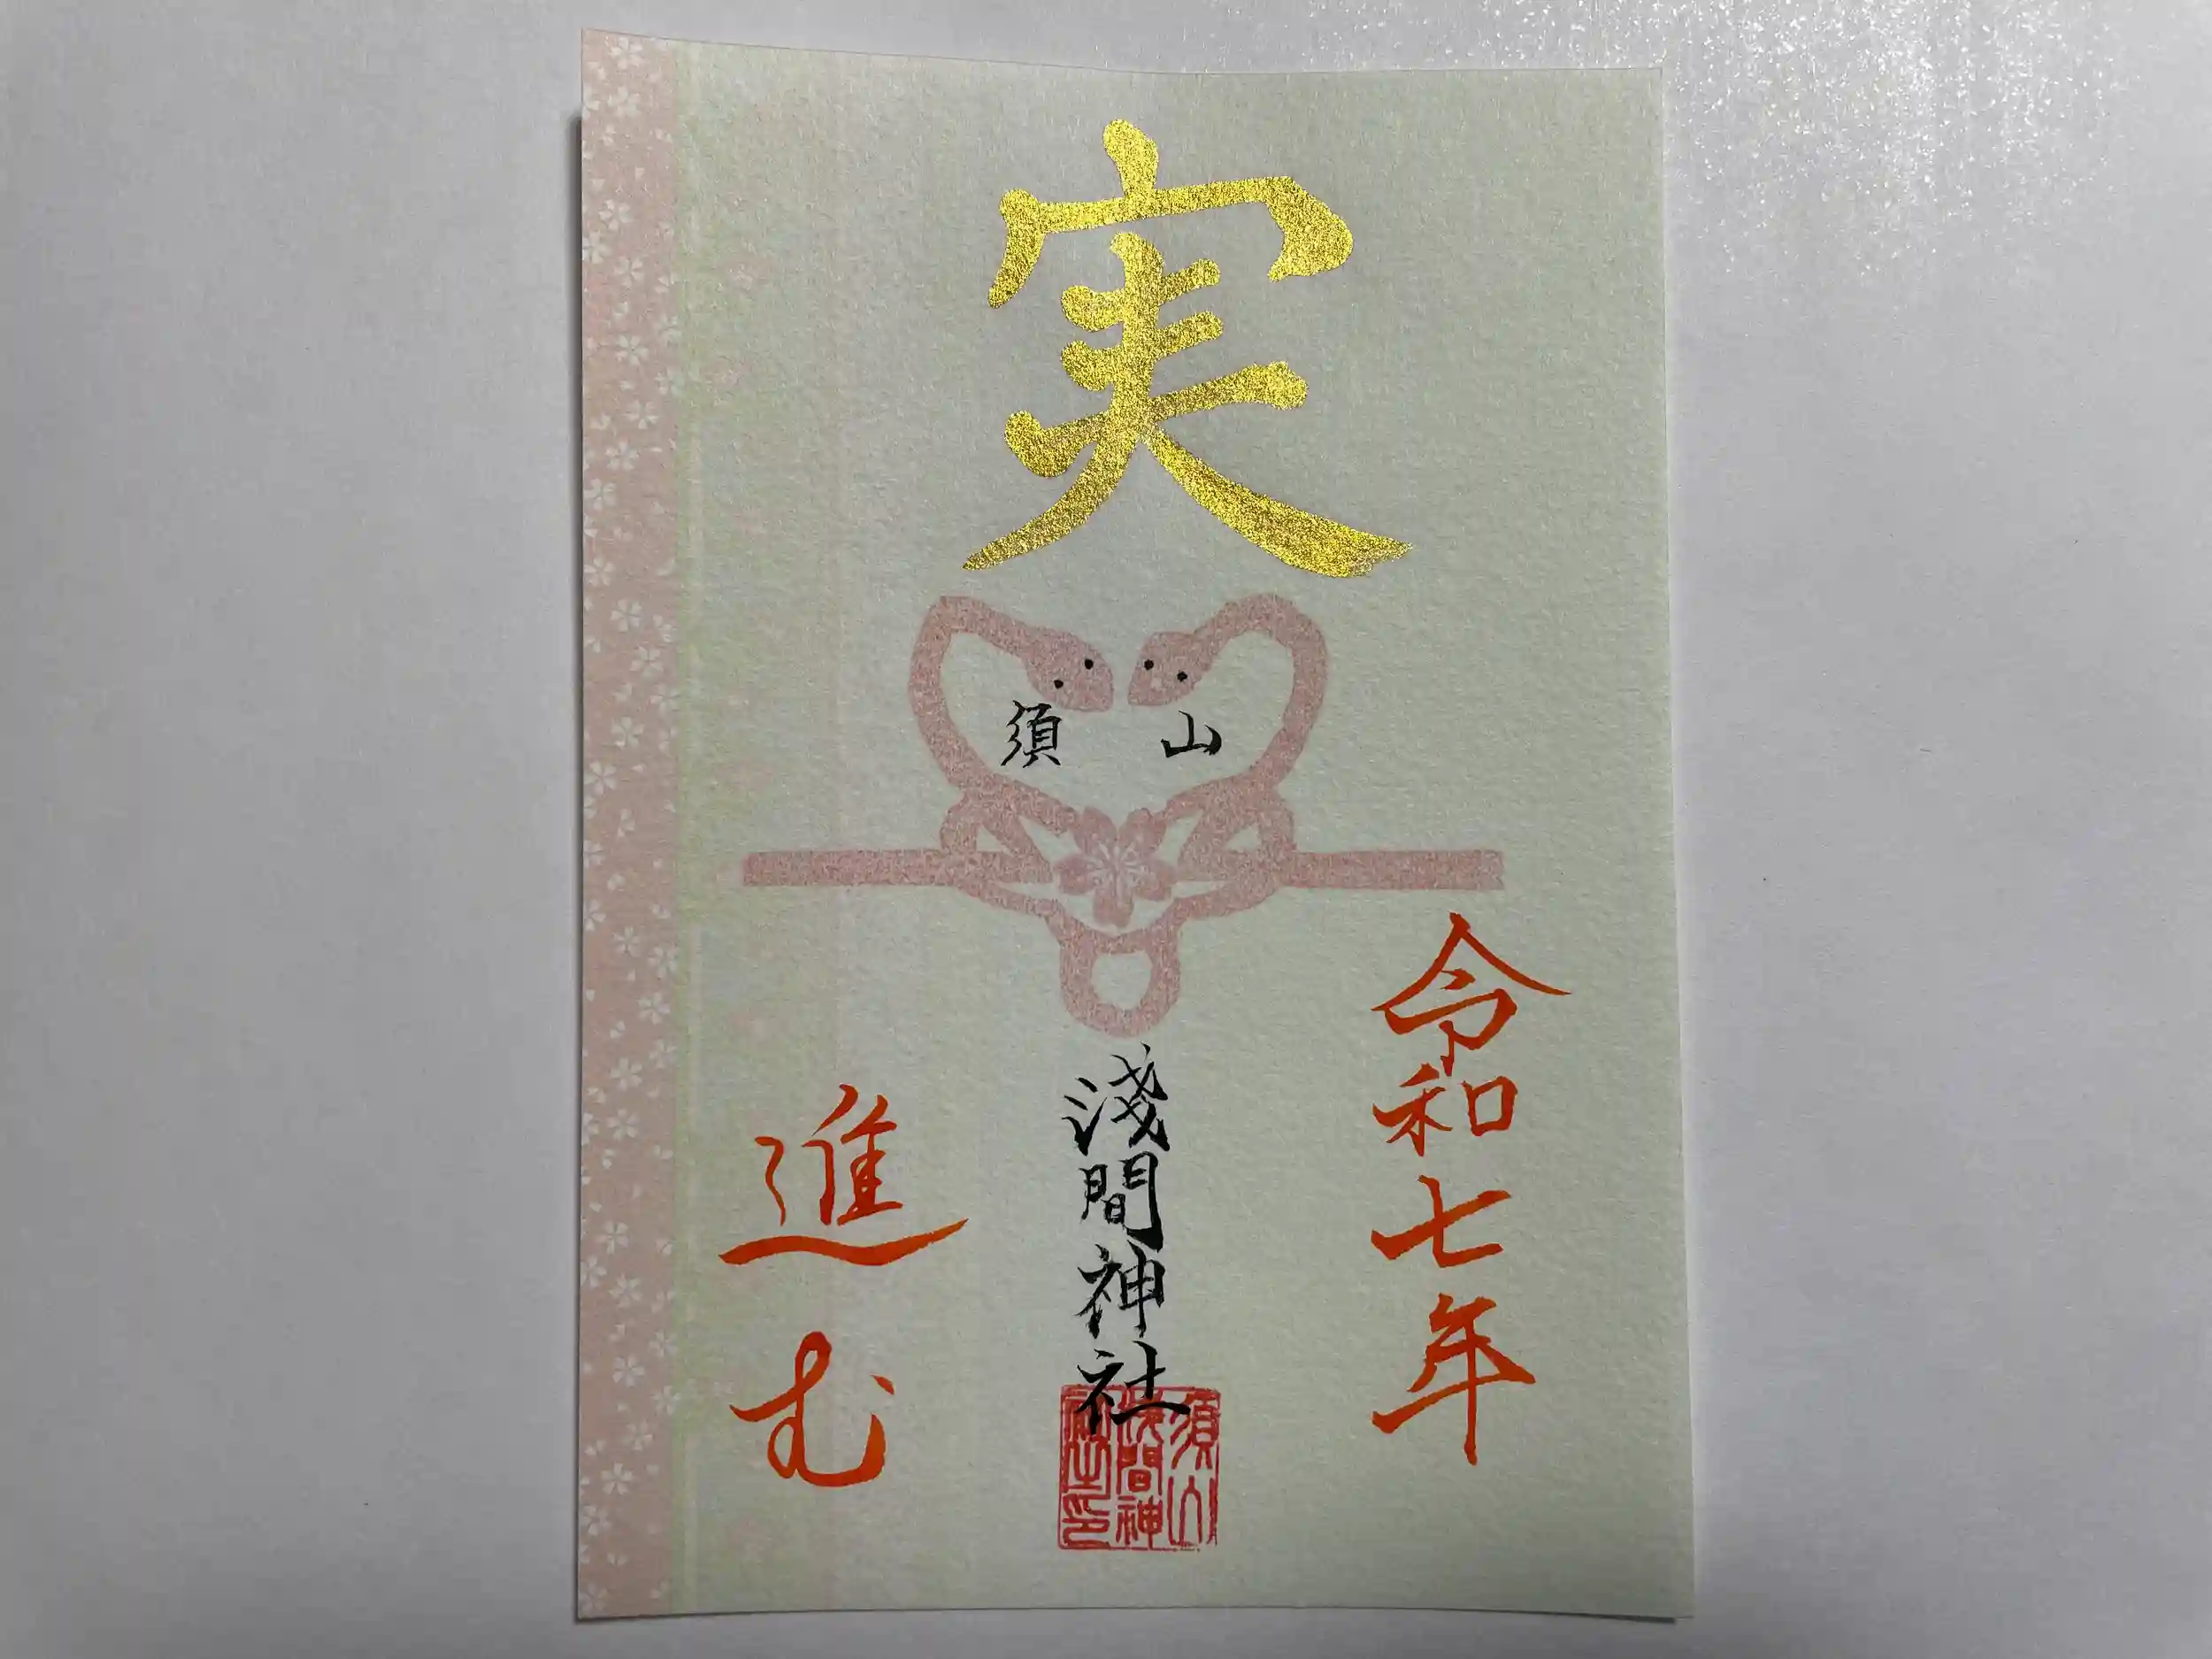 実
須 山
淺間神社
令和七年
進む
須山
浅間神
社之印